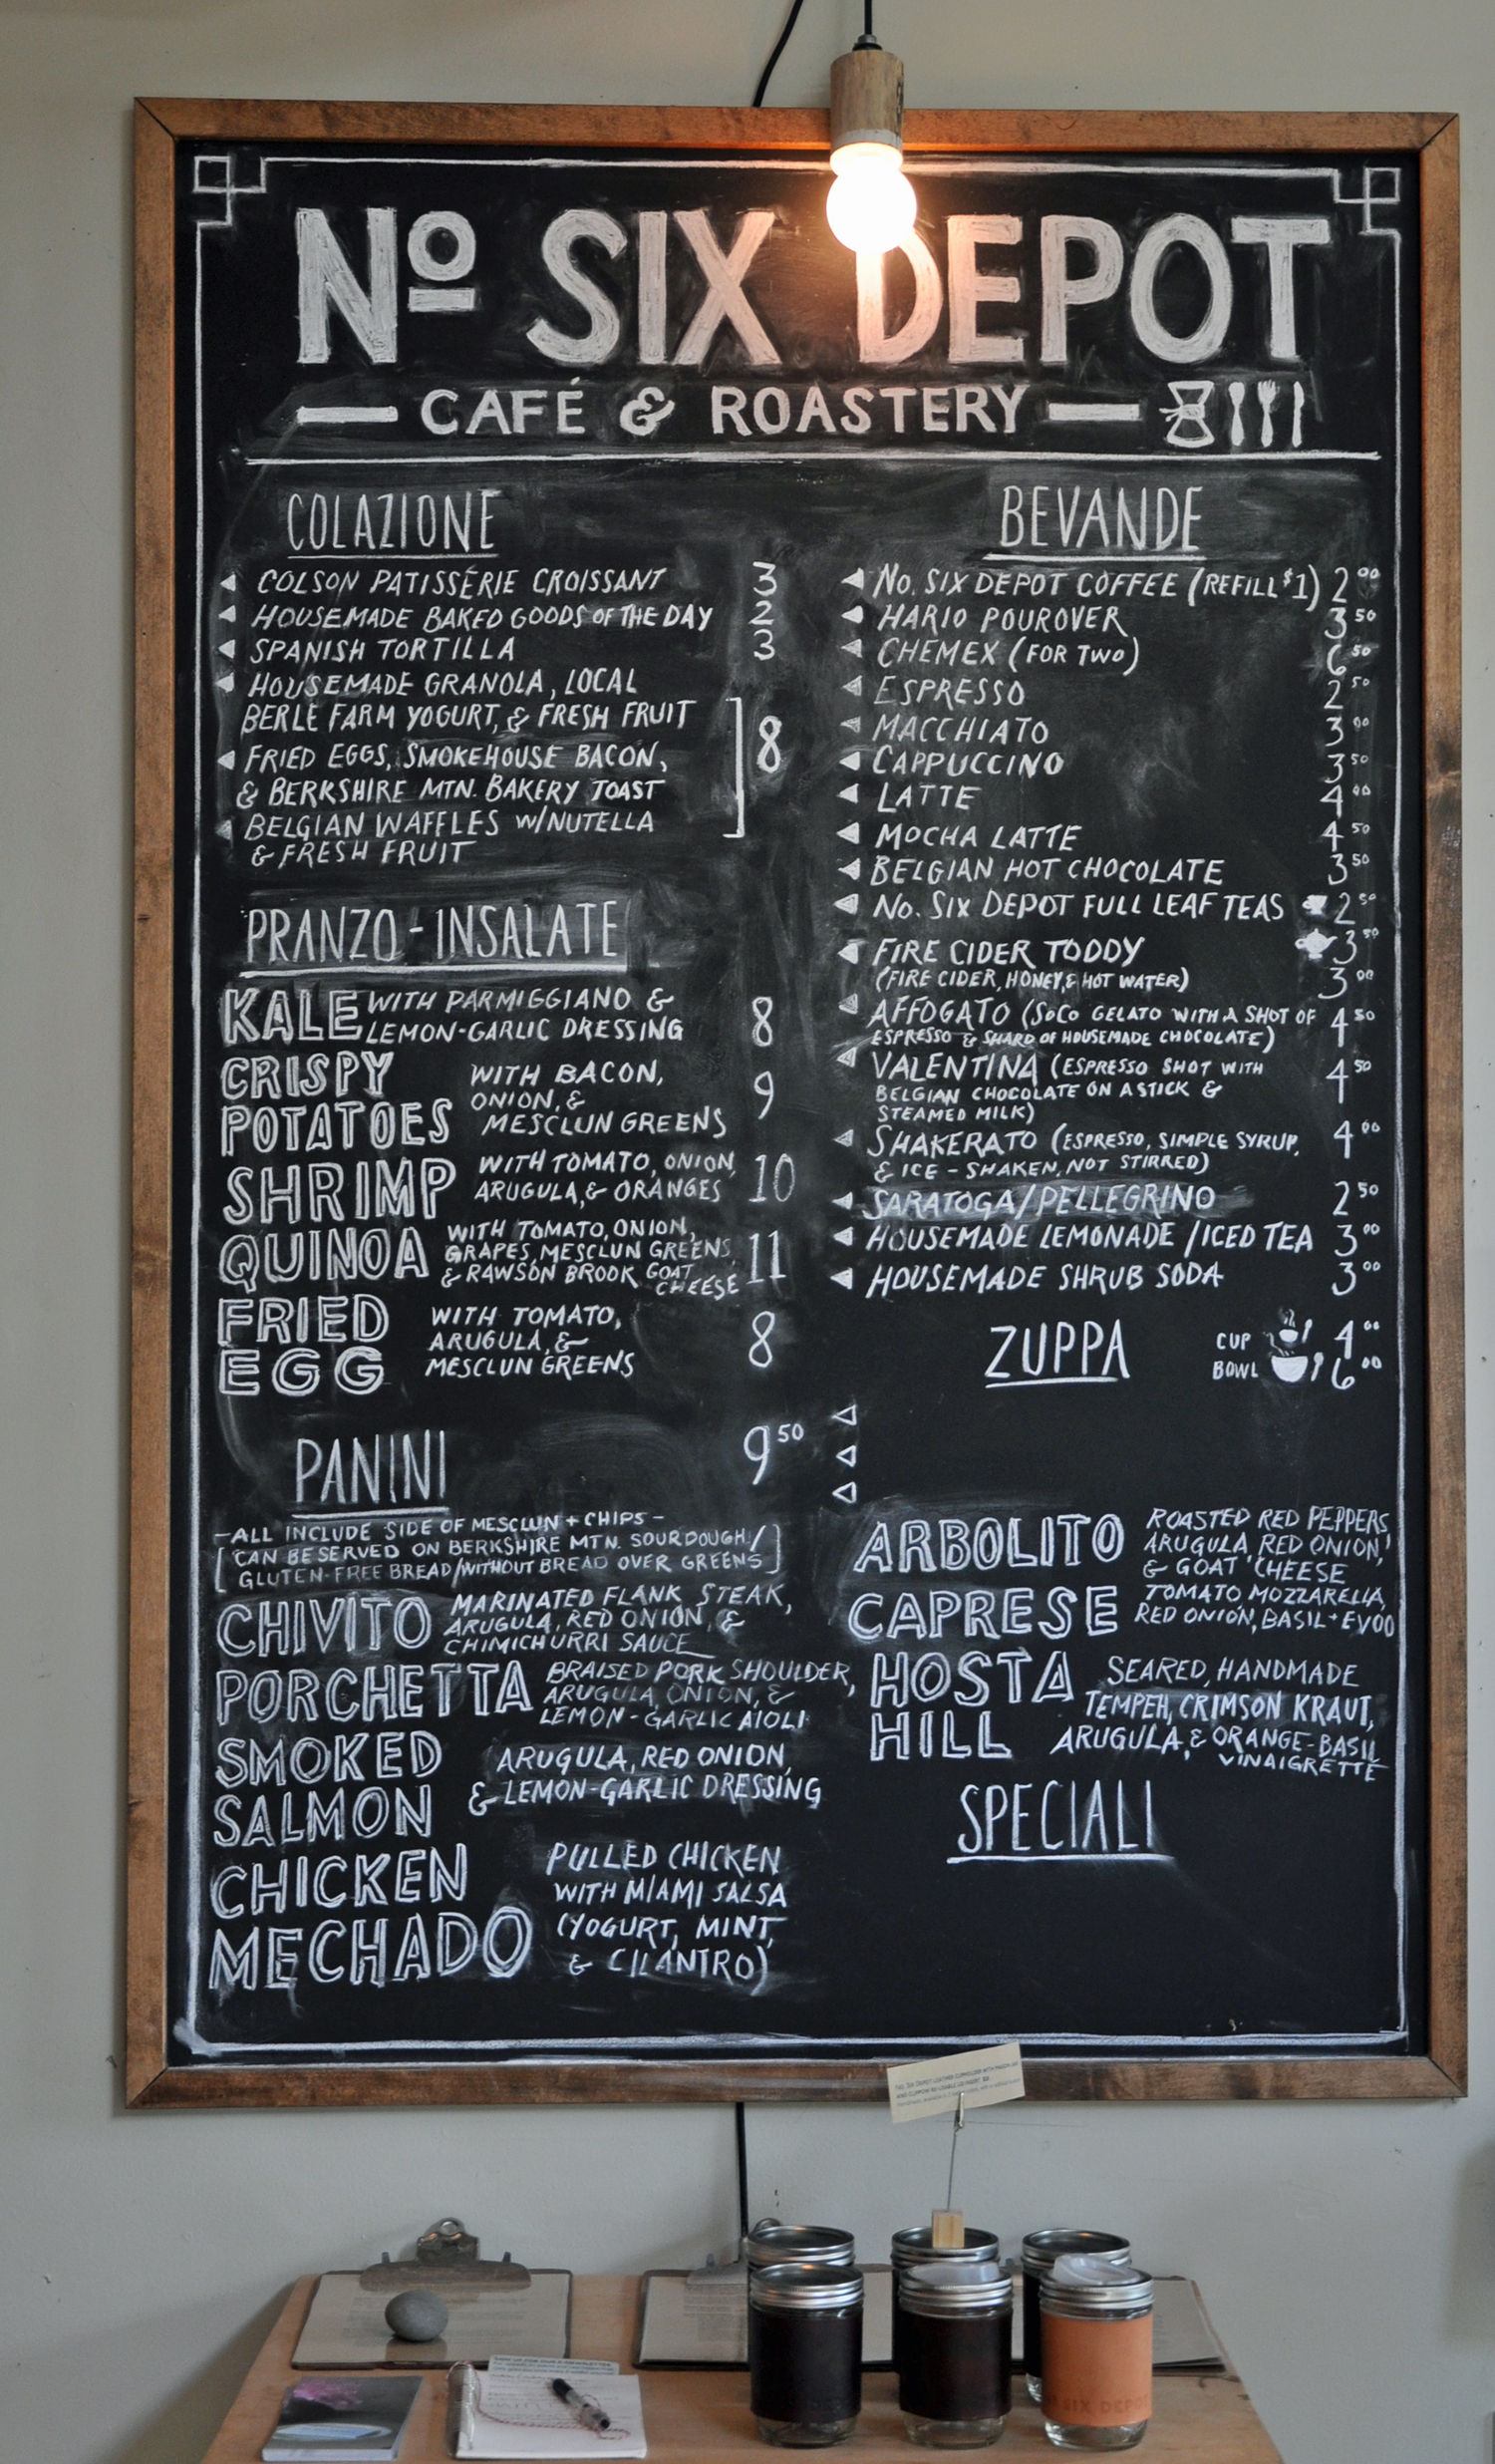 Nº SIX DEPOT
CAFÉ & ROASTERY
COLAZIONE
COLSON PATISSERIE CROISSANT 3
HOUSEMADE BAKED GOODS OF THE DAY 2
SPANISH TORTILLA 3
HOUSEMADE GRANOLA, LOCAL
BERLE FARM YOGURT, & FRESH FRUIT
FRIED EGGS, SMOKEHOUSE BACON,
& BERKSHIRE MTN. BAKERY TOAST
8
BELGIAN WAFFLES W/NUTELLA
& FRESH FRUIT
PRANZO - INSALATE
KALE WITH PARMIGGIANO &
LEMON-GARLIC DRESSING 8
CRISPY POTATOES
WITH BACON,
ONION, &
MESCLUN GREENS
9
SHRIMP WITH TOMATO, ONION,
ARUGULA, & ORANGES 10
QUINOA WITH TOMATO, ONION,
GRAPES, MESCLUN GREENS,
& RAWSON BROOK GOAT
CHEESE
11
FRIED EGG
WITH TOMATO,
ARUGULA, &
MESCLUN GREENS
8
PANINI 9.50
-ALL INCLUDE SIDE OF MESCLUN + CHIPS-
[CAN BE SERVED ON BERKSHIRE MTN. SOURDOUGH/
GLUTEN-FREE BREAD/WITHOUT BREAD OVER GREENS]
CHIVITO MARINATED FLANK STEAK,
ARUGULA, RED ONION, &
CHIMICHURRI SAUCE
PORCHETTA BRAISED PORK SHOULDER,
ARUGULA, ONION, &
LEMON-GARLIC AIOLI
SMOKED SALMON
ARUGULA, RED ONION,
& LEMON-GARLIC DRESSING
CHICKEN MECHADO
PULLED CHICKEN
WITH MIAMI SALSA
(YOGURT, MINT,
& CILANTRO)
BEVANDE
NO. SIX DEPOT COFFEE (REFILL $1) 2 00
HARIO POUROVER 3 50
CHEMEX (FOR TWO) 6 50
ESPRESSO 2 50
MACCHIATO 3 00
CAPPUCCINO 3 50
LATTE 4 00
MOCHA LATTE 4 50
BELGIAN HOT CHOCOLATE 3 50
NO. SIX DEPOT FULL LEAF TEAS 2 50
3 50
FIRE CIDER TODDY
(FIRE CIDER, HONEY, & HOT WATER) 3 00
AFFOGATO (SOCO GELATO WITH A SHOT OF
ESPRESSO & SHARD OF HOUSEMADE CHOCOLATE) 4 50
VALENTINA (ESPRESSO SHOT WITH
BELGIAN CHOCOLATE ON A STICK &
STEAMED MILK) 4 50
SHAKERATO (ESPRESSO, SIMPLE SYRUP,
& ICE - SHAKEN, NOT STIRRED) 4 00
SARATOGA/PELLEGRINO 2 50
HOUSEMADE LEMONADE / ICED TEA 3 00
HOUSEMADE SHRUB SODA 3 00
ZUPPA
CUP 4 00
BOWL 6 00
ARBOLITO ROASTED RED PEPPERS,
ARUGULA, RED ONION,
& GOAT CHEESE
CAPRESE TOMATO, MOZZARELLA,
RED ONION, BASIL + EVOO
HOSTA HILL
SEARED, HANDMADE
TEMPEH, CRIMSON KRAUT,
ARUGULA, & ORANGE-BASIL
VINAIGRETTE
SPECIALI
SIX DEPOT